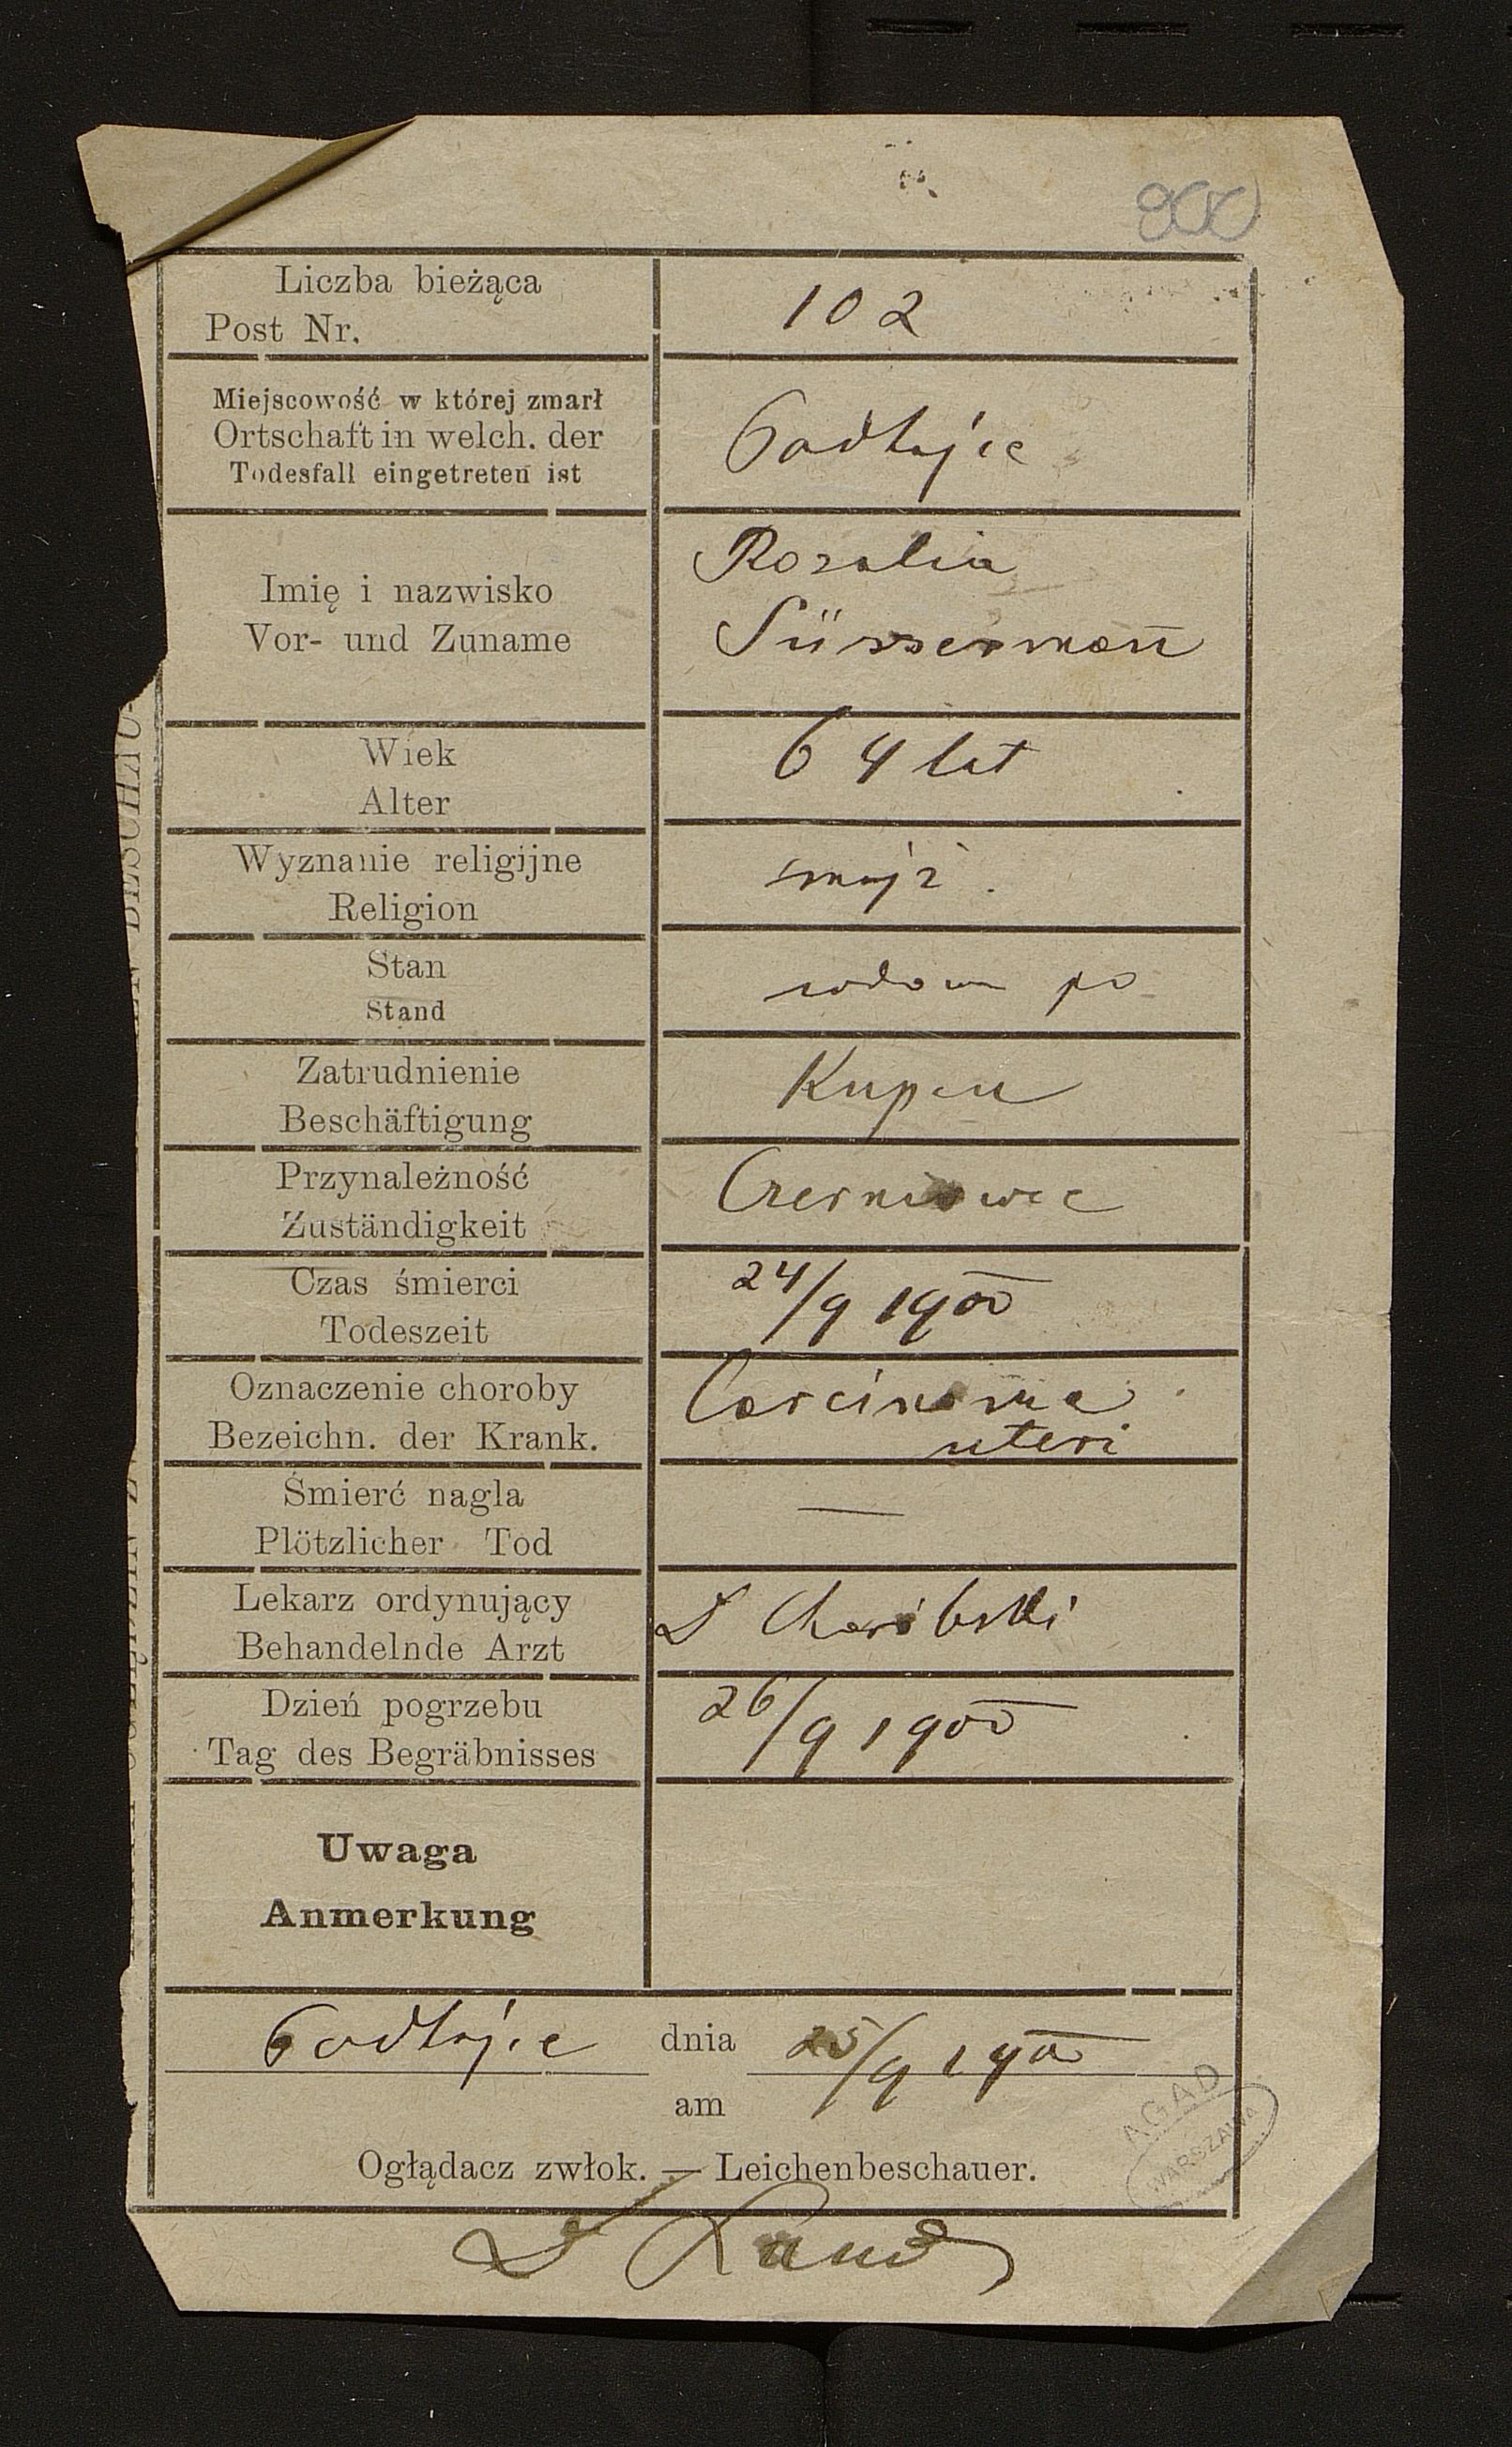 800
Liczba bieżąca
Post Nr.
102
Miejscowość w której zmarł
Ortschaft in welch. der
Todesfall eingetreten ist
Podhajce
Imię i nazwisko
Vor- und Zuname
Rozalia
Süssermann
Wiek
Alter
64 lat
Wyznanie religijne
Religion
mojż.
Stan
Stand
wdowa po
Zatrudnienie
Beschäftigung
Kupcu
Przynależność
Zuständigkeit
Czerniowce
Czas śmierci
Todeszeit
24/9 1900
Oznaczenie choroby
Bezeichn. der Krank.
Carcinoma
uteri
Śmierć nagla
Plötzlicher Tod
—
Lekarz ordynujący
Behandelnde Arzt
Dzień pogrzebu
Tag des Begräbnisses
26/9 1900
Uwaga
Anmerkung
Podhajce dnia 25/9 1900
am
Oglądacz zwłok. — Leichenbeschauer.
AGAD
WARSZAWA